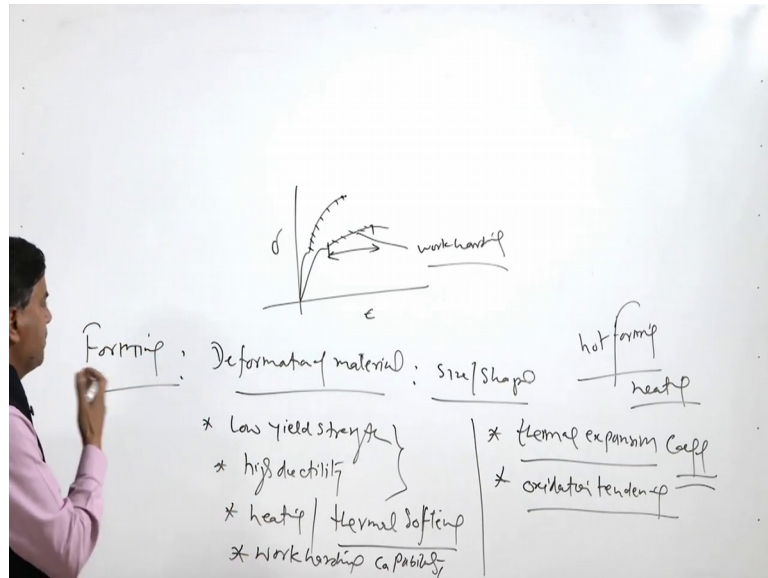 σ
work harding
ε
Forming : Deformation of material : size/shape
hot forming
heating
* low yield strength
* high ductility
* heating / thermal softing
* work harding capability
* thermal expansion Coeff
* oxidation tendency